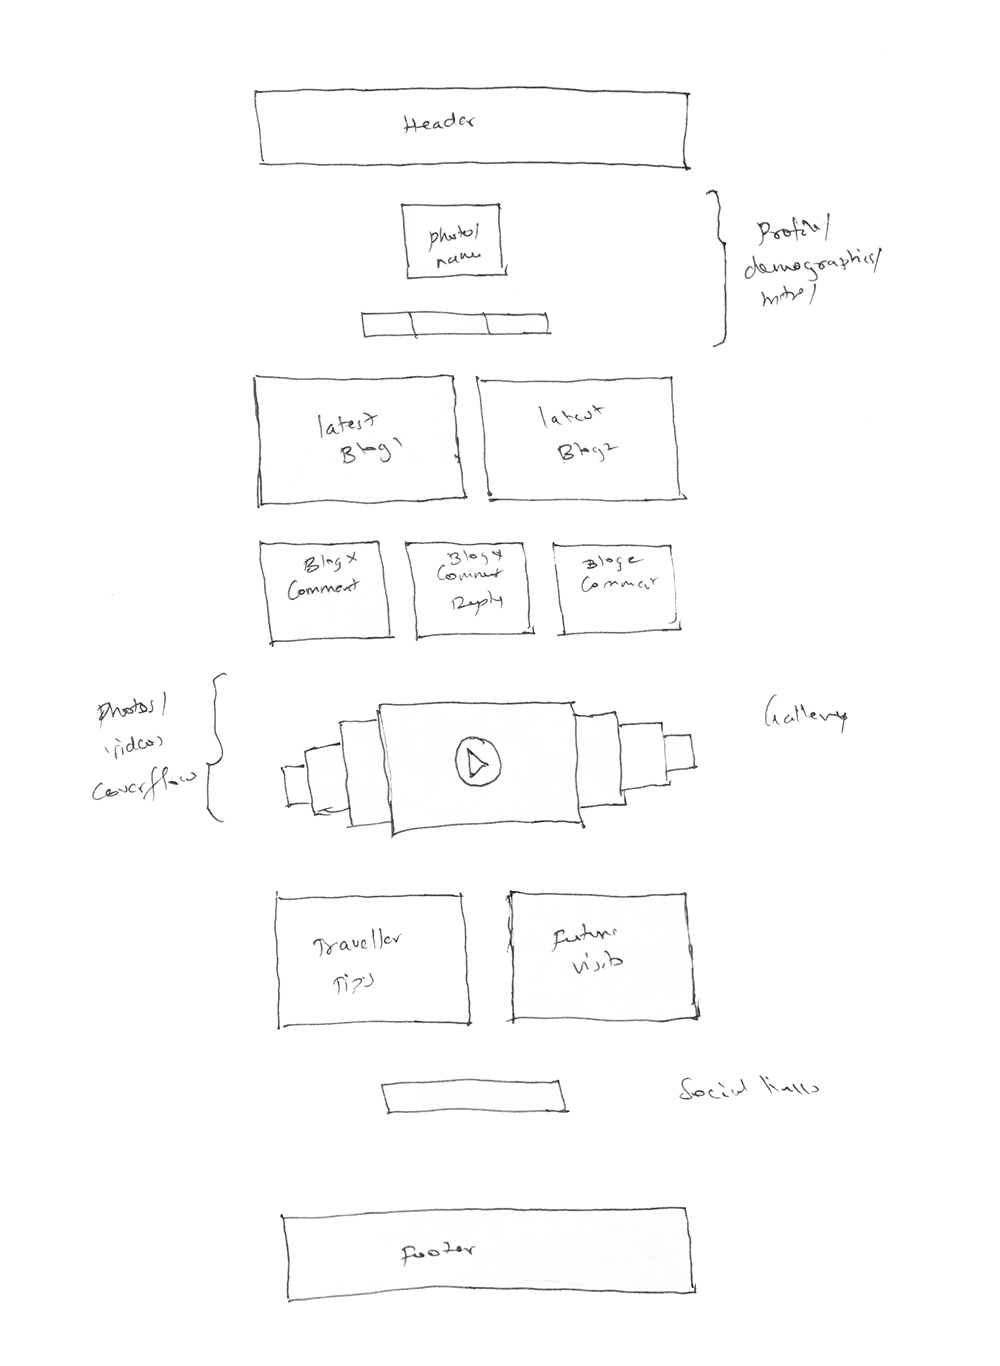 Header
photo/
name
Profile/
demographics/
intro/
latest
Blog1
latest
Blog2
Blog x
Comment
Blog x
Comment
Reply
Blog z
Comment
Photos/
videos
Coverflow
Gallery
Traveller
Tips
Future
visits
Social links
Footer